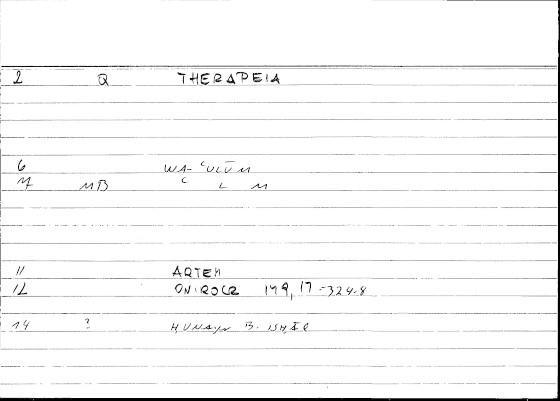 2 Q THERAPEIA
6 WA-ʿULŪM
7 MB ʿ L M
11 ARTEM
12 ONIROCR 149,17-324.8
14 ? HUNAYN B. ISḤĀQ